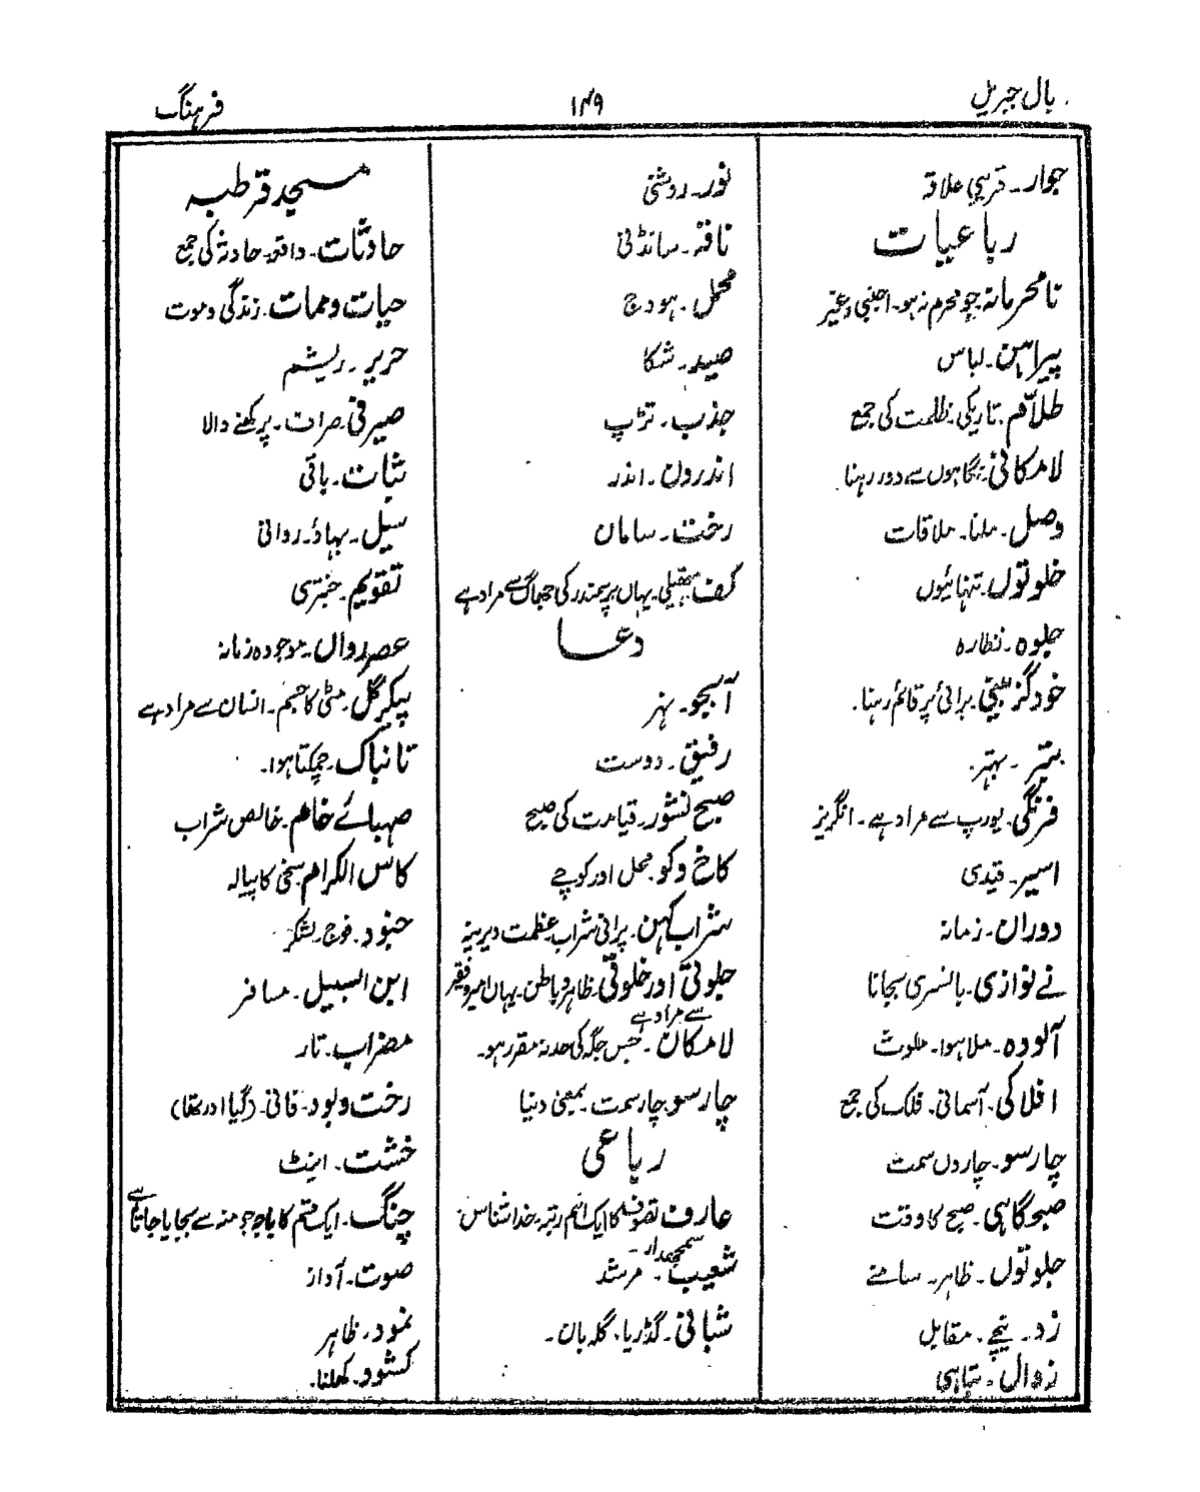 بال جبریل
۱۴۹
فرہنگ
جوار۔ قریبی علاقہ
رباعیات
نامحرمانہ جو محرم نہ ہو۔ اجنبی وغیر
پیراہن۔ لباس
ظلام۔ تاریکی۔ ظلمت کی جمع
لامکانی۔ نگاہوں سے دور رہنا۔
وصل۔ ملنا۔ ملاقات
خلوتوں۔ تنہائیوں
جلوہ۔ نظارہ
خودگزینی۔ برائی پر قائم رہنا۔
بتر۔ بہتر۔
فرنگی۔ یورپ سے مراد ہے۔ انگریز
اسیر۔ قیدی
دوراں۔ زمانہ
نے نوازی۔ بانسری بجانا
آلودہ۔ ملا ہوا۔ ملوث
افلاکی۔ آسمانی۔ فلک کی جمع
چارسو۔ چاروں سمت
صبحگاہی۔ صبح کا وقت
جلوتوں۔ ظاہر۔ سامنے
زد۔ نیچے۔ مقابل
زوال۔ تباہی
نور۔ روشنی
ناقہ۔ سانڈنی
محمل۔ ہودج
صید۔ شکا
جذب۔ تڑپ
اندرون۔ اندر
رخت۔ سامان
کف۔ ہتھیلی۔ یہاں پر سمندر کی جھاگ سے مراد ہے
دعا
آبجو۔ نہر
رفیق۔ دوست
صبح نشور۔ قیامت کی صبح
کاخ وکو۔ محل اور کوچے
شراب کہن۔ پرانی شراب۔ عظمت دیرینہ
جلوتی اور خلوتی۔ ظاہر و باطن۔ یہاں امیر وفقیر
سے مراد ہے
لامکان۔ جس جگہ کی حد نہ مقرر ہو۔
چارسو۔ چار سمت۔ بمعنی دنیا
رباعی
عارف۔ تصوف کا ایک اہم رتبہ۔ خدا شناس۔
سمجھدار۔
شعیب۔ مرشد
شبانی۔ گڈریا۔ گلہ بان۔
مسجد قرطبہ
حادثات۔ واقعہ۔ حادثہ کی جمع
حیات وممات۔ زندگی وموت
حریر۔ ریشم
صیرفی۔ صراف۔ پرکھنے والا
ثبات۔ باقی
سیل۔ بہاؤ۔ روانی
تقویم۔ جنتری
عصرِ رواں۔ موجودہ زمانہ
پیکرِ گل۔ مٹی کا جسم۔ انسان سے مراد ہے
تابناک۔ چمکتا ہوا۔
صہبائے خام۔ خالص شراب
کاس الکرام۔ سخی کا پیالہ
جنود۔ فوج۔ لشکر
ابن السبیل۔ مسافر
مضراب۔ تار
رخت وبود۔ فانی۔ (گیا اور تھا)
خشت۔ اینٹ
چنگ۔ ایک قسم کا باجہ جو منہ سے بجایا جاتا ہے
صوت۔ آواز
نمود۔ ظاہر
کشود۔ کھلنا۔